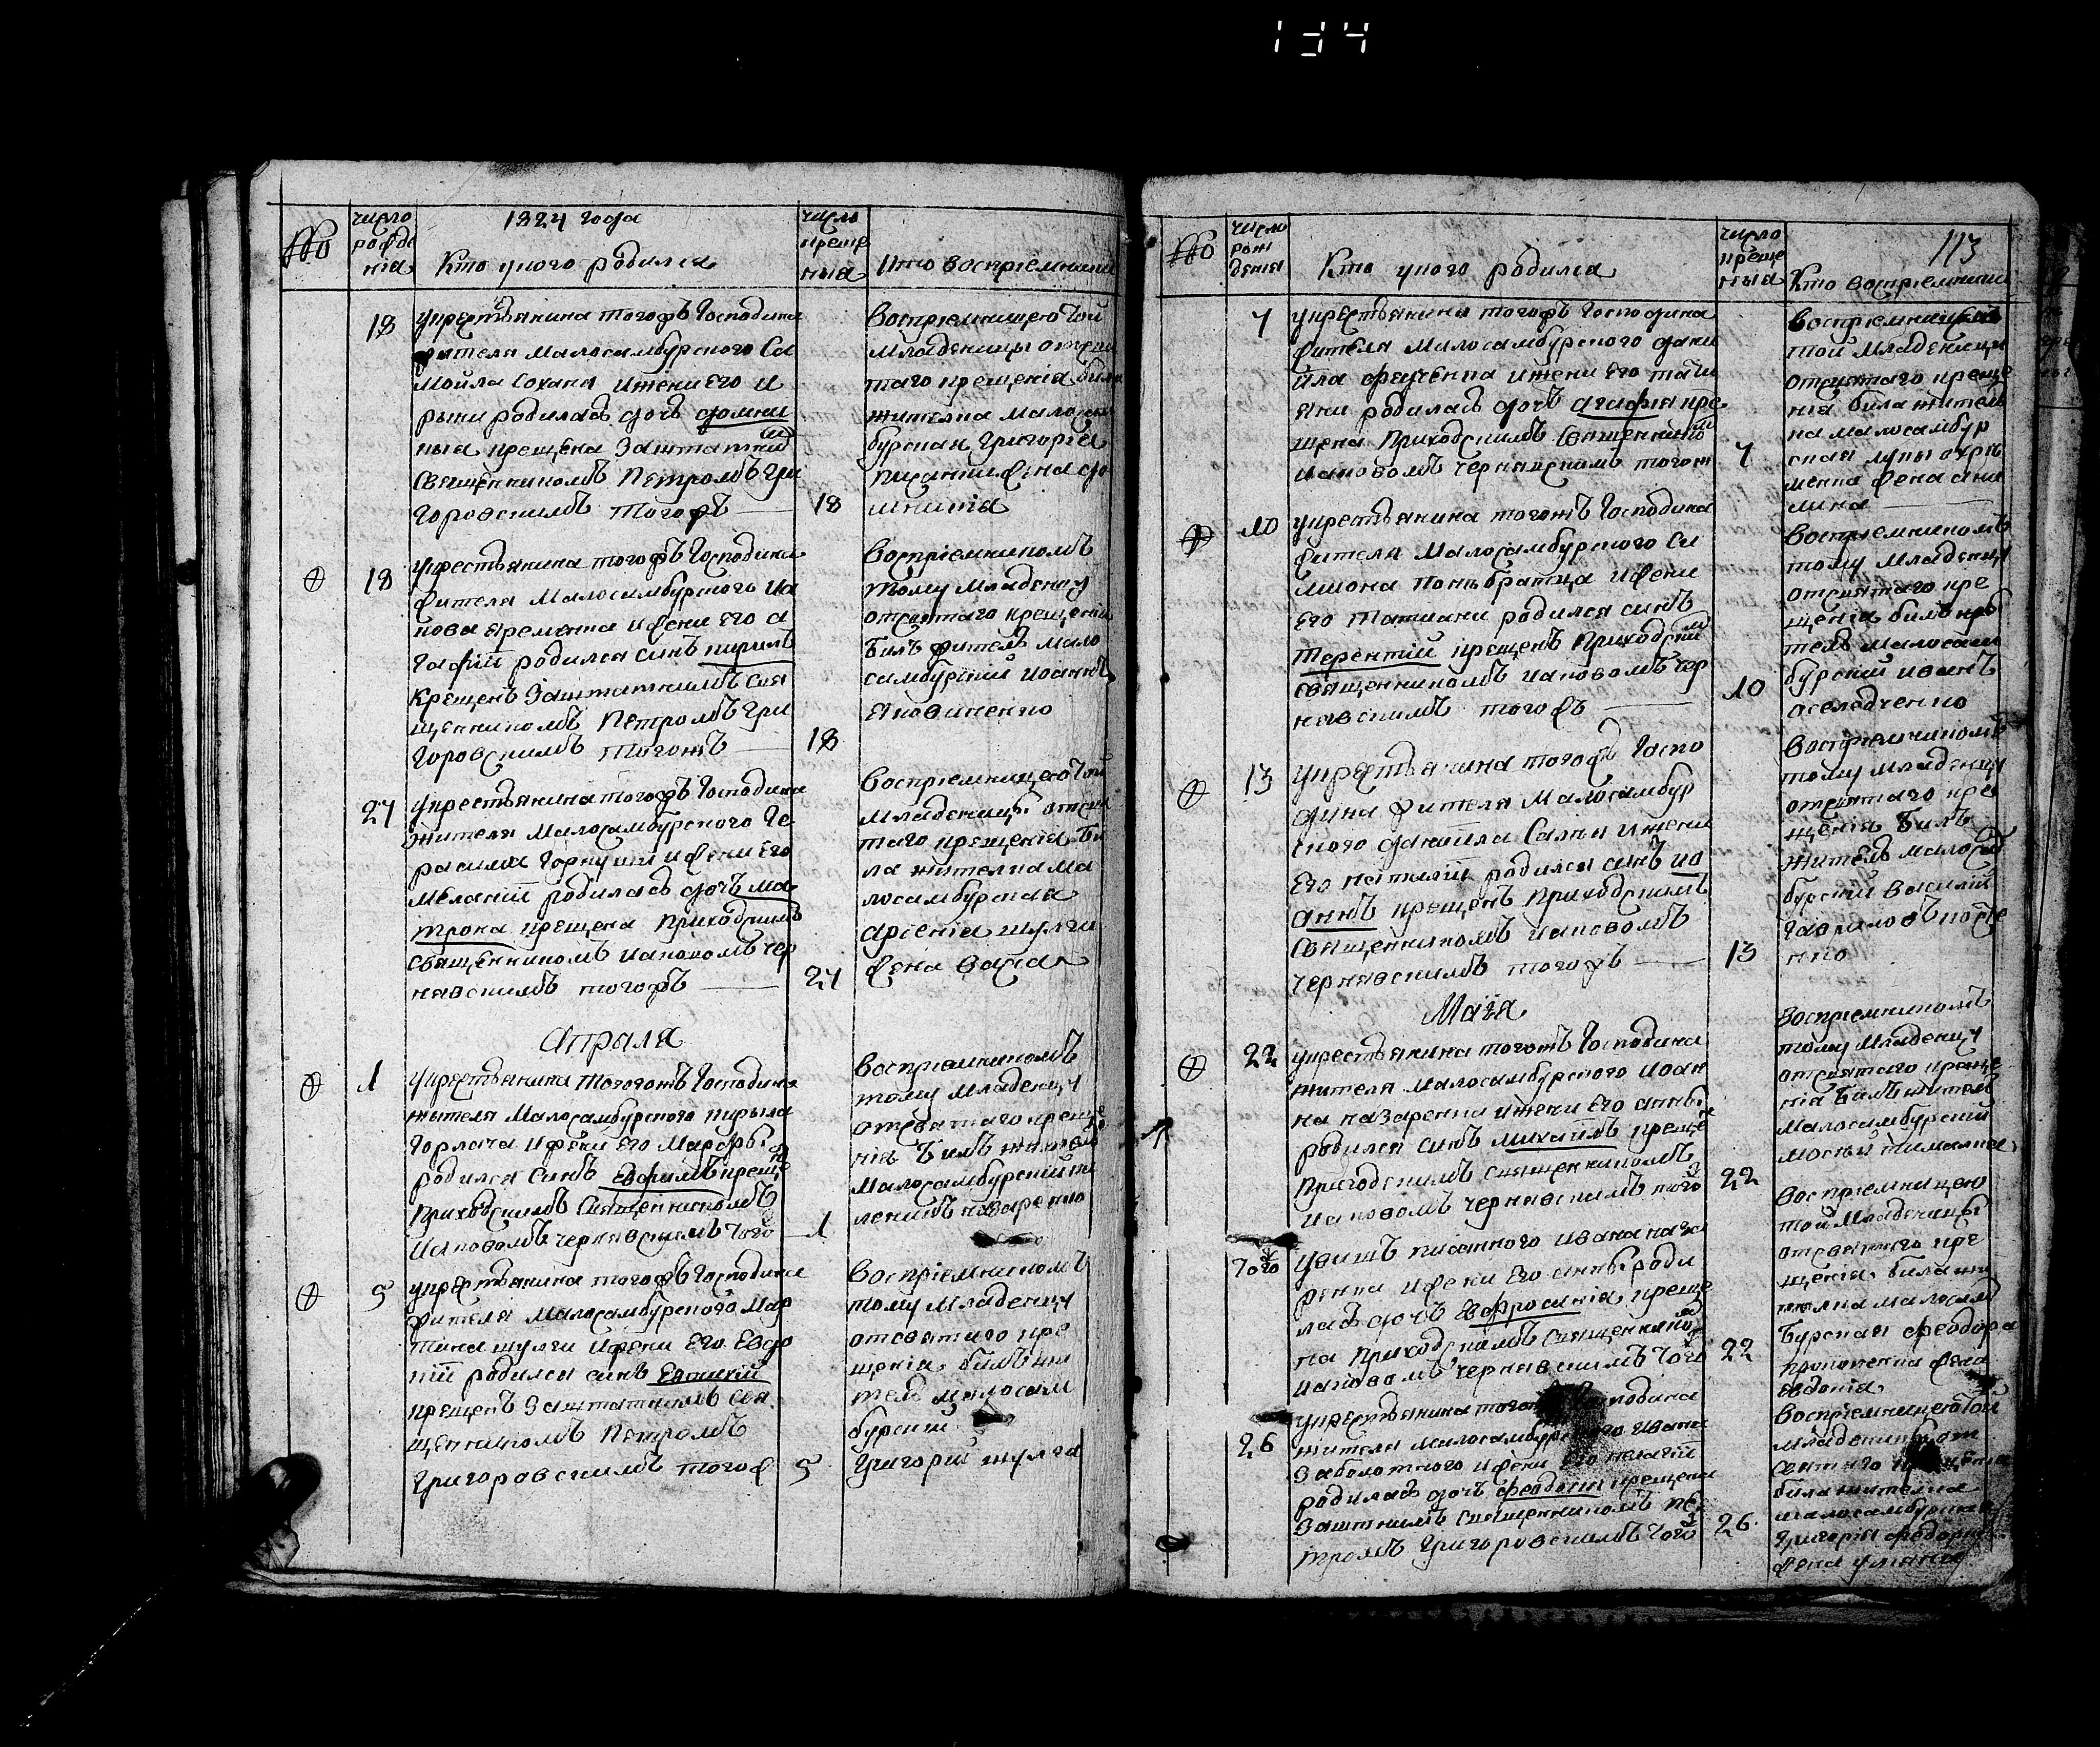 134
1824 года
число рожде нія
Кто у кого родился
число креще нія
Кто воспріемники
18
укрестьянина тогожъ Господина
жителя Малосамбурского Са
мойла Сохана ижени Его И
рыни родилась дочъ домни
кыя крещена Заштатним
Священникомъ Петромъ Гри
горовскимъ тогожъ
18
Воспріемницею той
Младеницы отсвя
таго крещенія била
жителка Малосам
бурская Григорія
жена до
мникія
18
укрестьянина тогожъ Господина
жителя Малосамбурского Иа
кова Яременка ижени Его а
гафіи родился синъ кирилъ
крещенъ Заштатнимъ Свя
щенникомъ Петромъ Гри
горовскимъ тогожъ
18
Воспріемникомъ
тому Младенцу
отсвятаго крещения
билъ житель Мало
самбурский Иоаннъ
Яковиненко
27
укрестьянина тогожъ Господина
жителя Малосамбурского Ге
расима Горкуши ижени Его
Меланіи родилась дочъ ма
трона крещена Приходскимъ
Священникомъ Иаковомъ Чер
нявскимъ тогожъ
27
Воспріемницею той
Младеницы отсвя
таго крещения би
ла жителка Ма
лосамбурская
Арсенія шулги
жена
Апреля
1
укрестьянина тогожъ Господина
жителя Малосамбурского кирыла
Горлача ижени Его Марфы
родился Синъ Евфимъ креще
Приходскимъ Священникомъ
Иаковомъ Чернявскимъ того
1
Воспріемникомъ
тому Младенцу
отсвятаго креще
нія билъ житель
Малосамбурский
назаренко
5
укрестьянина тогожъ Господина
жителя Малосамбурского Мар
тина шулги ижени Его Евдо
кіи родился синъ
крещенъ Заштатнимъ Свя
щенникомъ Петромъ
Григоровскимъ тогож
5
Воспріемникомъ
тому Младенцу
отсвятаго кре
щенія билъ жи
тель малосам
бурский
Григорий шулга
113
число рож денія
Кто у кого родился
число креще нія
Кто воспріемники
7
укрестьянина тогожъ Господина
жителя Малосамбурского дани
ила ижени Его татия
яни родилась дочъ агафія кре
щена Приходскимъ Священником
Иаковомъ Чернявскимъ тогож
7
Воспріемницею
той Младеници
отсвятаго креще
нія била жител
ка малосамбур
ская лукы охрѣ
менка жена аки
лина
10
укрестьянина тогожъ Господина
жителя Малосамбурского Си
миона Понибратца ижени
Его татияни родился синъ
Терентий крещенъ Приходским
священникомъ Иаковомъ Чер
нявскимъ тогожъ
10
Воспріемникомъ
тому Младенцу
отсвятаго кре
щенія билъ жи
тель малосам
бурский иванъ
оселедченко
13
укрестьянина тогожъ Госпо
дина жителя Малосамбур
ского даниила ижени
Его наталіи родился синъ ио
аннъ крещенъ Приходскимъ
Священникомъ Иаковомъ
Чернявскимъ тогожъ
13
Воспріемникомъ
тому Младенцу
отсвятаго кре
щенія билъ
житель малосам
бурский василий
Гавриловъ косте
нко
Маія
22
укрестьянина тогожъ Господина
жителя Малосамбурского Иоан
на назаренка ижени Его анны
родился синъ михаилъ креще
Приходскимъ Священникомъ
Иаковомъ Чернявскимъ того
22
Воспріемникомъ
тому Младенцу
отсвятаго креще
нія билъ житель
малосамбурский
того ж
увишъ писанного ивана наза
ренка ижени Его анны роди
лась дочъ Евфросинія креще
на Приходскимъ Священнико
Иаковомъ Чернявскимъ того
22
Воспріемницею
той Младеницы
отсвятаго кре
щенія била жи
телка малосам
бурская феодора
жена
Евдокія
26
укрестьянина Господина
жителя Малосамбурского ивана
Заболотного ижени Его
родилась дочъ крещена
Заштнимъ Священникомъ Пе
тромъ Григоровскимъ того
26
Воспріемницею той
младеници от
святаго
била жителка
малосамбурская
Григорія
жена улияна